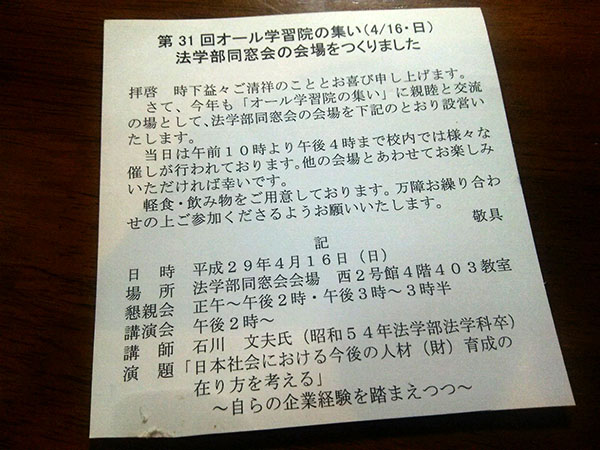 第31回オール学習院の集い(4/16・日)
法学部同窓会の会場をつくりました
拝啓　時下益々ご清祥のこととお喜び申し上げます。
さて、今年も「オール学習院の集い」に親睦と交流
の場として、法学部同窓会の会場を下記のとおり設営い
たします。
当日は午前１０時より午後４時まで校内では様々な
催しが行われております。他の会場とあわせてお楽しみ
いただければ幸いです。
軽食・飲み物をご用意しております。万障お繰り合わ
せの上ご参加くださるようお願いいたします。
敬具
記
日　時　平成２９年４月１６日（日）
場　所　法学部同窓会会場　西２号館４階４０３教室
懇親会　正午～午後２時・午後３時～３時半
講演会　午後２時～
講　師　石川　文夫氏（昭和５４年法学部法学科卒）
演　題「日本社会における今後の人材（財）育成の
在り方を考える」
～自らの企業経験を踏まえつつ～